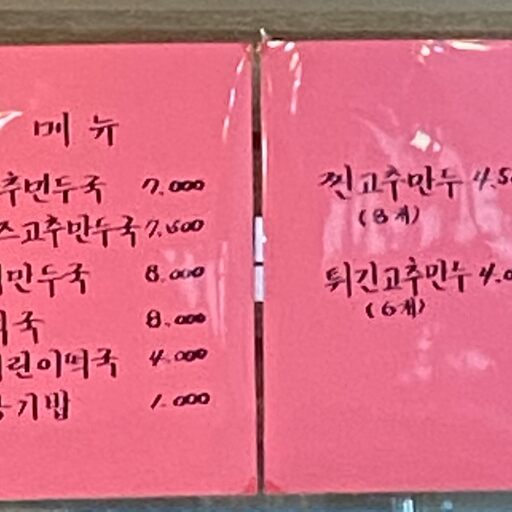 메뉴
추만두국 7.000
즈고추만두국 7.500
만두국 8.000
국 8.000
린이떡국 4.000
기밥 1.000
찐고추만두 4.5
(8개)
튀긴고추만두 4.0
(6개)